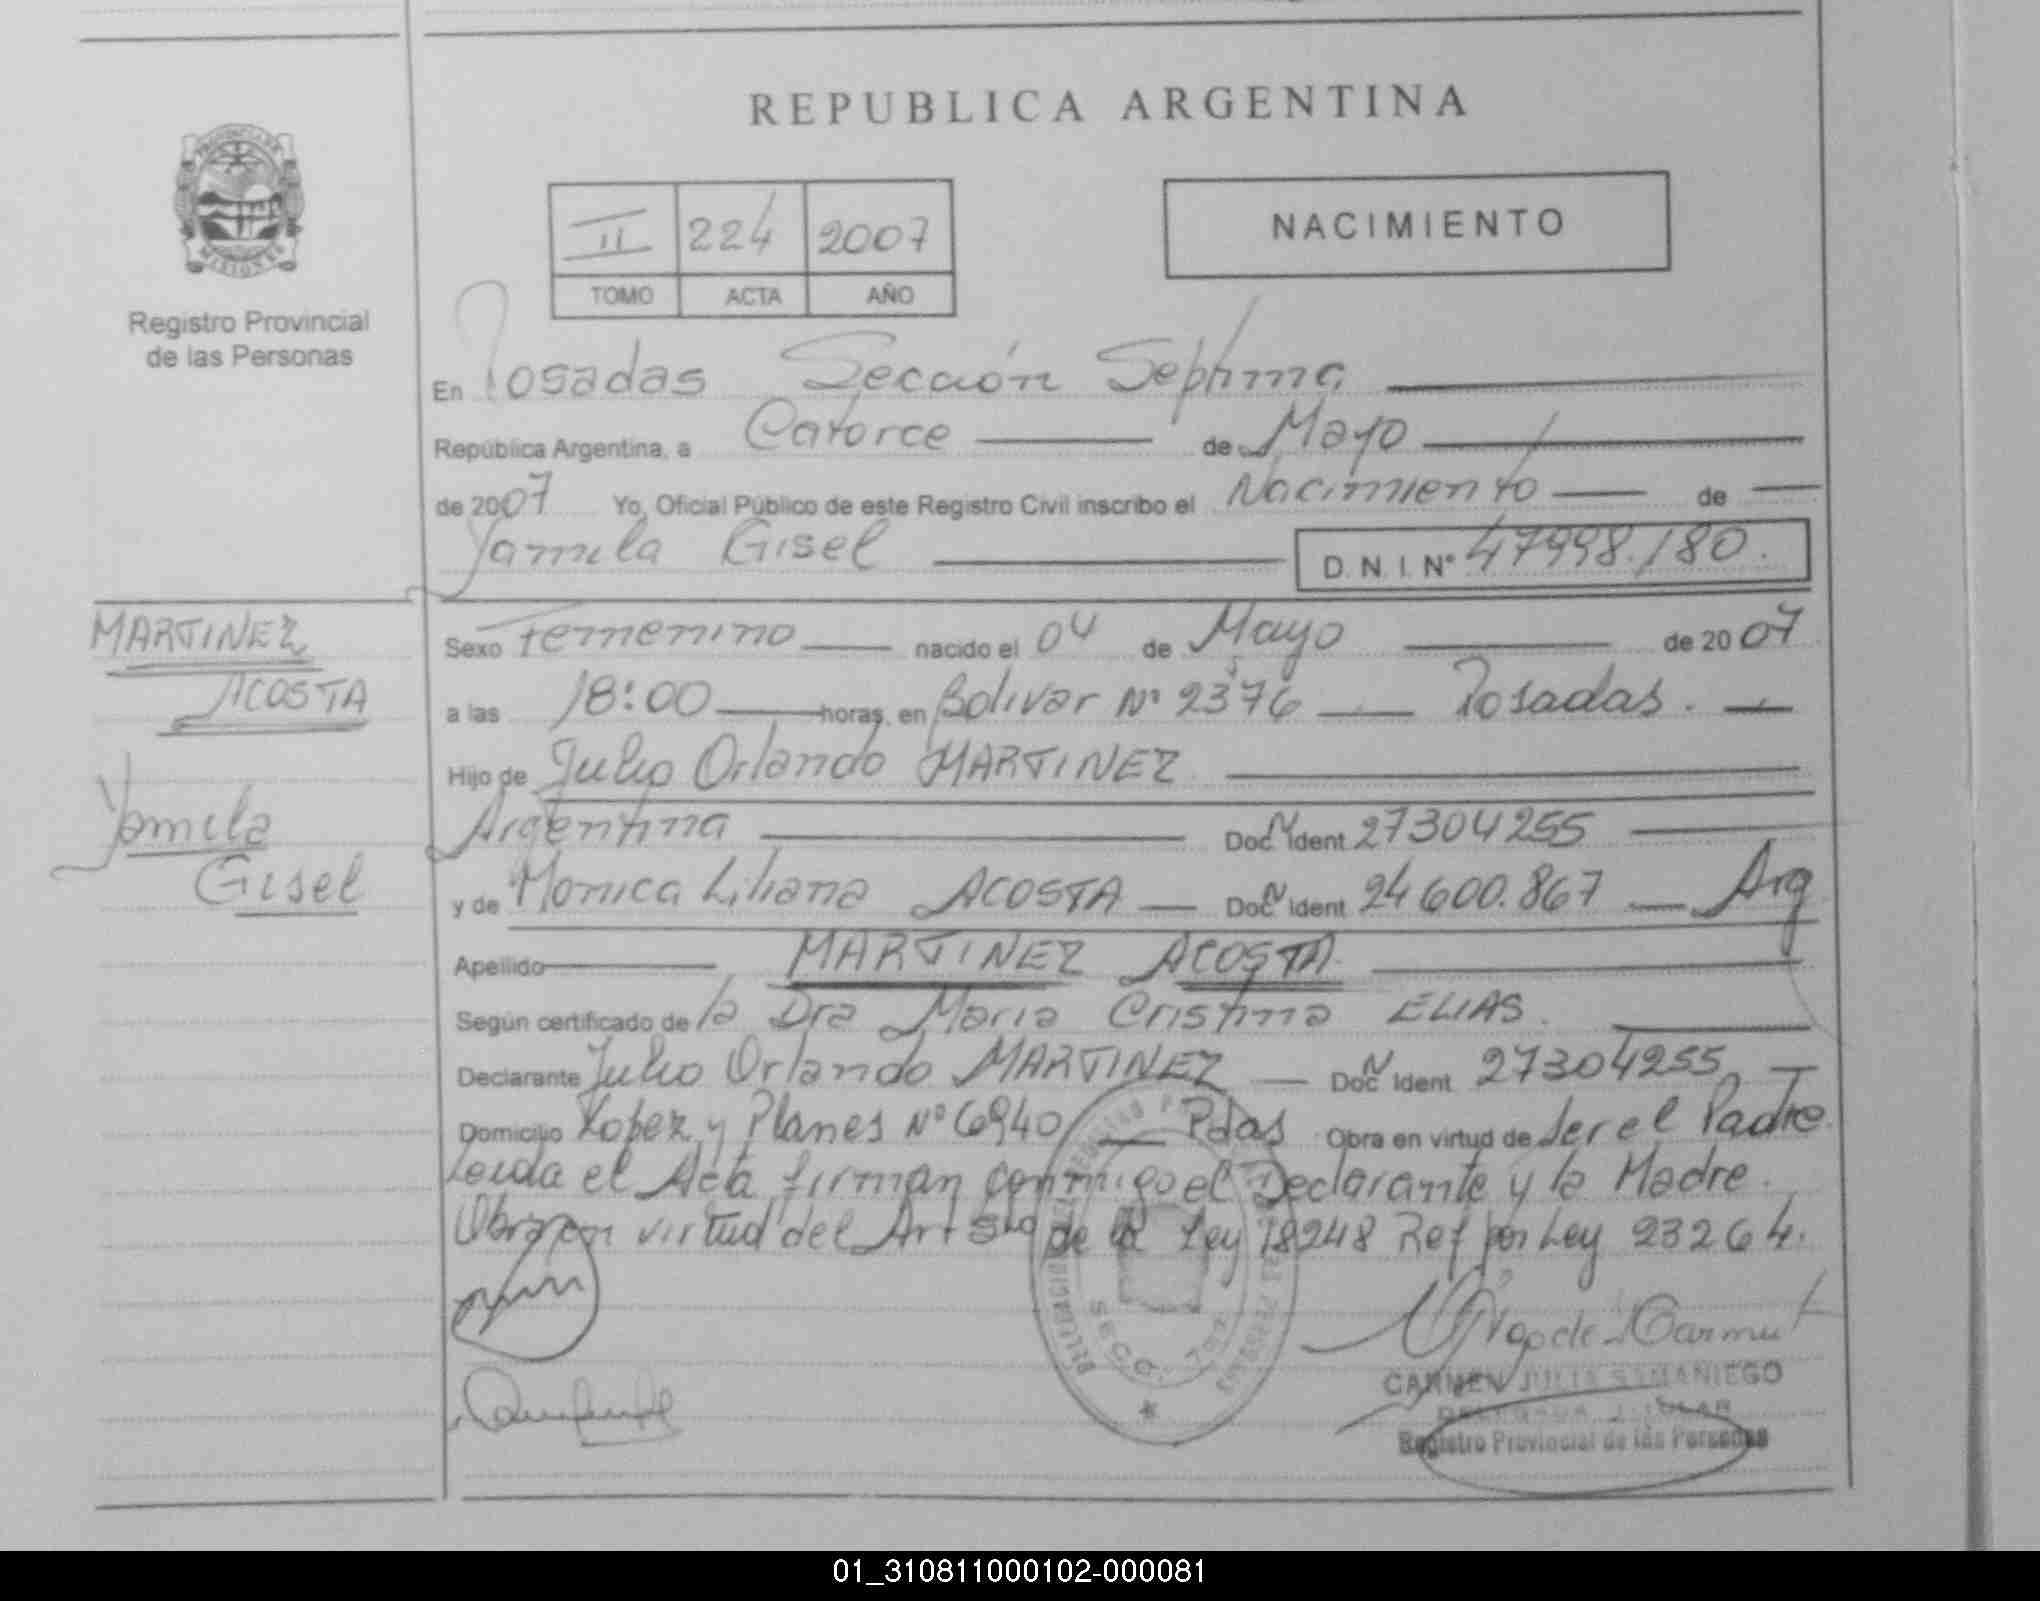 REPUBLICA ARGENTINA
PROVINCIA DE
MISIONES
Registro Provincial
de las Personas
II 224 2007
TOMO ACTA AÑO
NACIMIENTO
En Posadas Sección Septima
República Argentina, a Catorce de Mayo
de 2007 Yo, Oficial Público de este Registro Civil inscribo el Nacimiento de
Yamila Gisel D. N. I. Nº 47998.180.
MARTINEZ
ACOSTA
Yamila
Gisel
Sexo Femenino nacido el 04 de Mayo de 2007
a las 18:00 horas, en Bolivar Nº 2376 Posadas.
Hijo de Julio Orlando MARTINEZ
Argentina Doc. Ident 27304255
y de Monica Liliana ACOSTA Doc. Ident 24600.867 Arg
Apellido MARTINEZ ACOSTA
Según certificado de la Dra Maria Cristina ELIAS.
Declarante Julio Orlando MARTINEZ Doc. Ident 27304255
Domicilio Lopez y Planes Nº 6940 Pdas Obra en virtud de ser el Padre
Leida el Acta firman conmigo el Declarante y la Madre.
Obra en virtud del Art 5to de la Ley 18248 Ref por Ley 23264.
CARMEN JULIA SAMANIEGO
DELEGADA TITULAR
Registro Provincial de las Personas
01_310811000102-000081